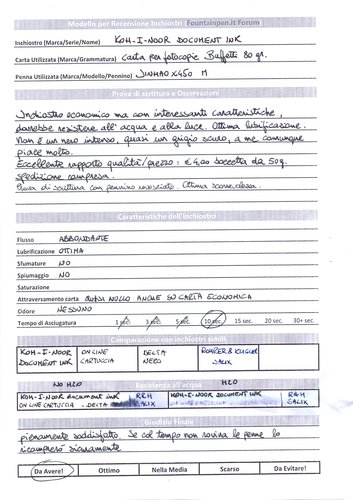 Modello per Recensione Inchiostri Fountainpen.it Forum
Inchiostro (Marca/Serie/Nome) KOH-I-NOOR DOCUMENT INK
Carta Utilizzata (Marca/Grammatura) Carta per fotocopie Buffetti 80 gr.
Penna Utilizzata (Marca/Modello/Pennino) JINHAO X450 M
Prova di scrittura e Osservazioni
Inchiostro economico ma con interessanti caratteristiche,
dovrebbe resistere all'acqua e alla luce. Ottima lubrificazione.
Non è un nero intenso, quasi un grigio scuro, a me comunque
piace molto.
Eccellente rapporto qualità/prezzo: € 4,00 boccetta da 50g
spedizione compresa.
Prova di scrittura con pennino rovesciato. Ottima scorrevolezza.
Caratteristiche dell'inchiostro
Flusso ABBONDANTE
Lubrificazione OTTIMA
Sfumature NO
Spiumaggio NO
Saturazione
Attraversamento carta QUASI NULLO ANCHE SU CARTA ECONOMICA
Odore NESSUNO
Tempo di Asciugatura 1 sec. 3 sec. 5 sec. 10 sec. 15 sec. 20 sec. 30+ sec.
Comparazione con inchiostri simili
KOH-I-NOOR DOCUMENT INK ONLINE CARTUCCIA DELTA NERO ROHRER & KLINGNER SALIX
NO H2O Resistenza all'acqua H2O
KOH-I-NOOR document INK R&K KOH-I-NOOR DOCUMENT INK R&K
ONLINE CARTUCCIA - DELTA SALIX SALIX
Giudizio Finale
pienamente soddisfatto. Se col tempo non rovina le penne lo
ricomprerò sicuramente.
Da Avere! Ottimo Nella Media Scarso Da Evitare!